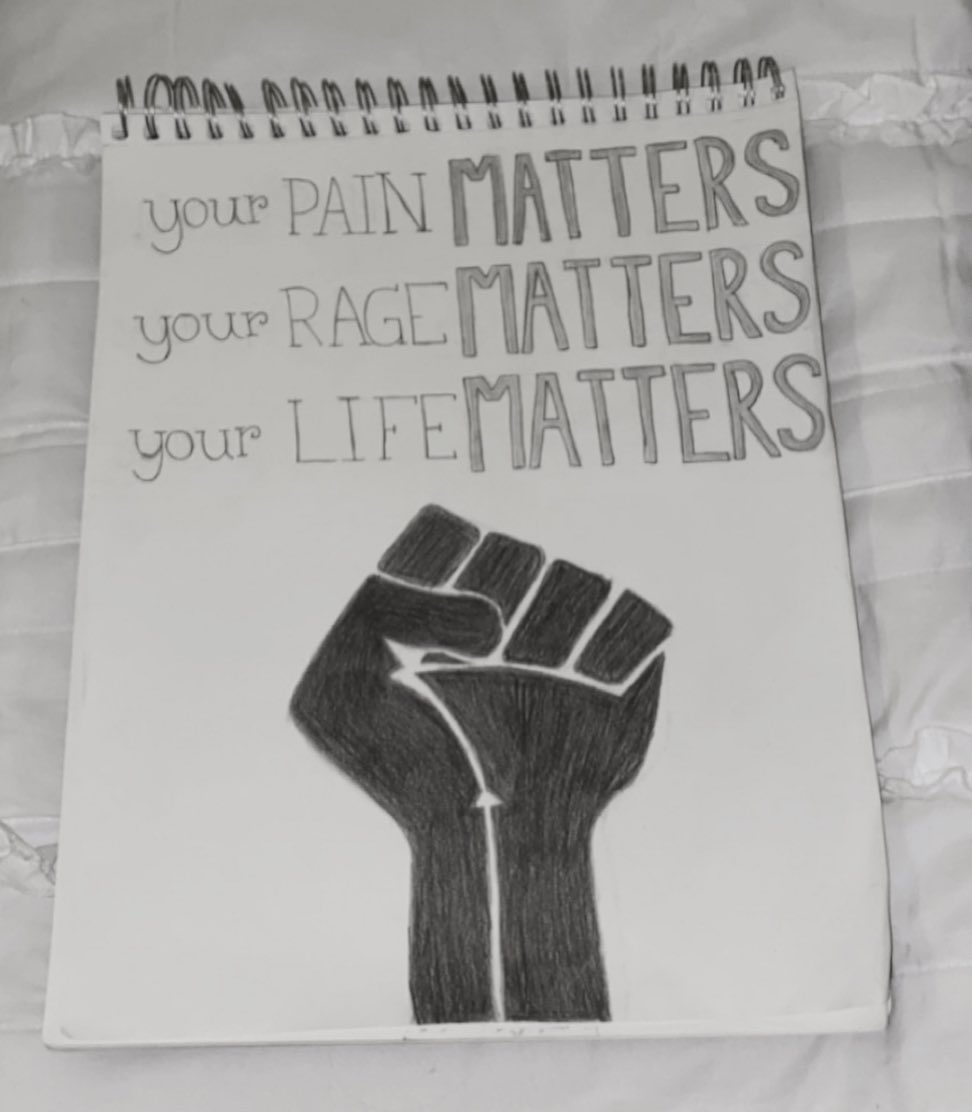 your PAIN MATTERS
your RAGE MATTERS
your LIFE MATTERS